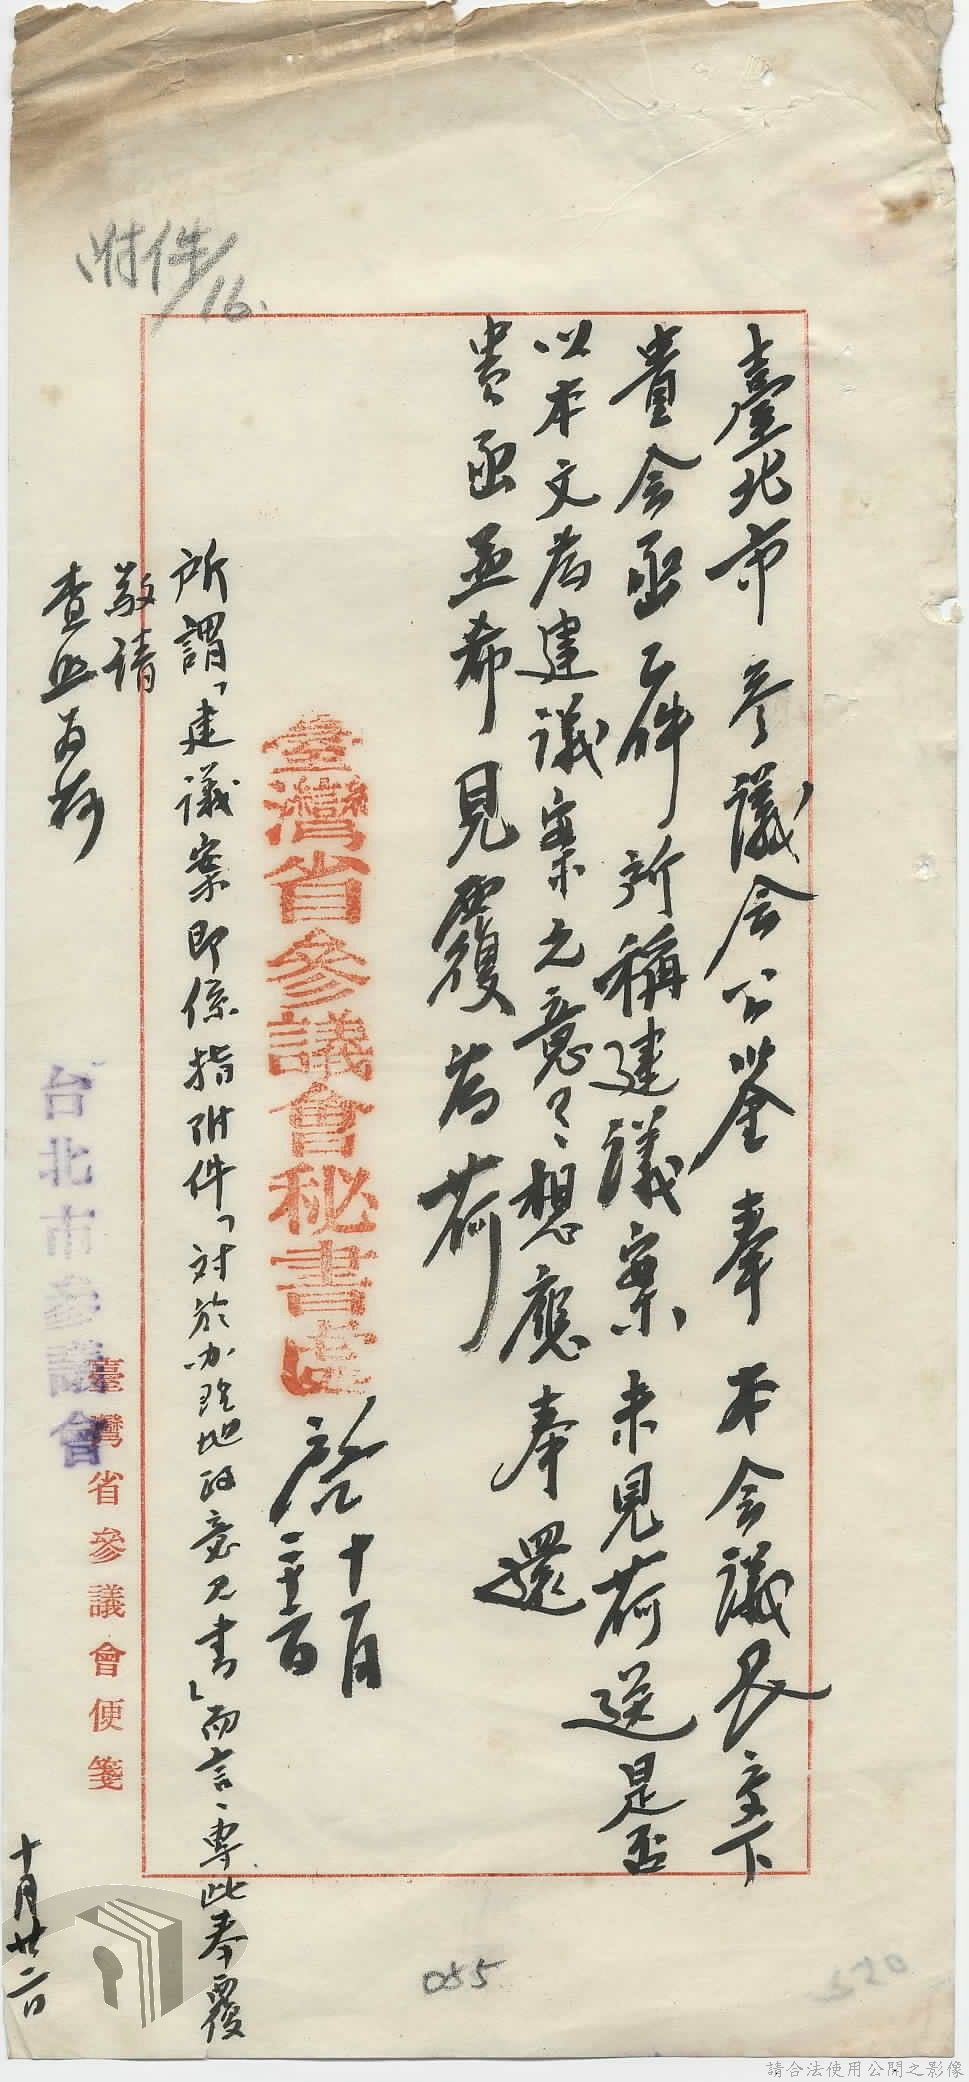 附件/16.
臺北市參議会公鋻奉本会議長交下
貴会函一件所稱建議案未見荷送是否
以本文為建議案之意々想應奉還
貴函並希見覆為荷
臺灣省參議會秘書處
啟十月
二十一日
所謂「建議案即係指附件「対於办理地政意见書」而言、專此奉覆
敬請
查照为荷
台北市參議會
臺灣省參議會便箋
十月廿二日
055
520
請合法使用公開之影像